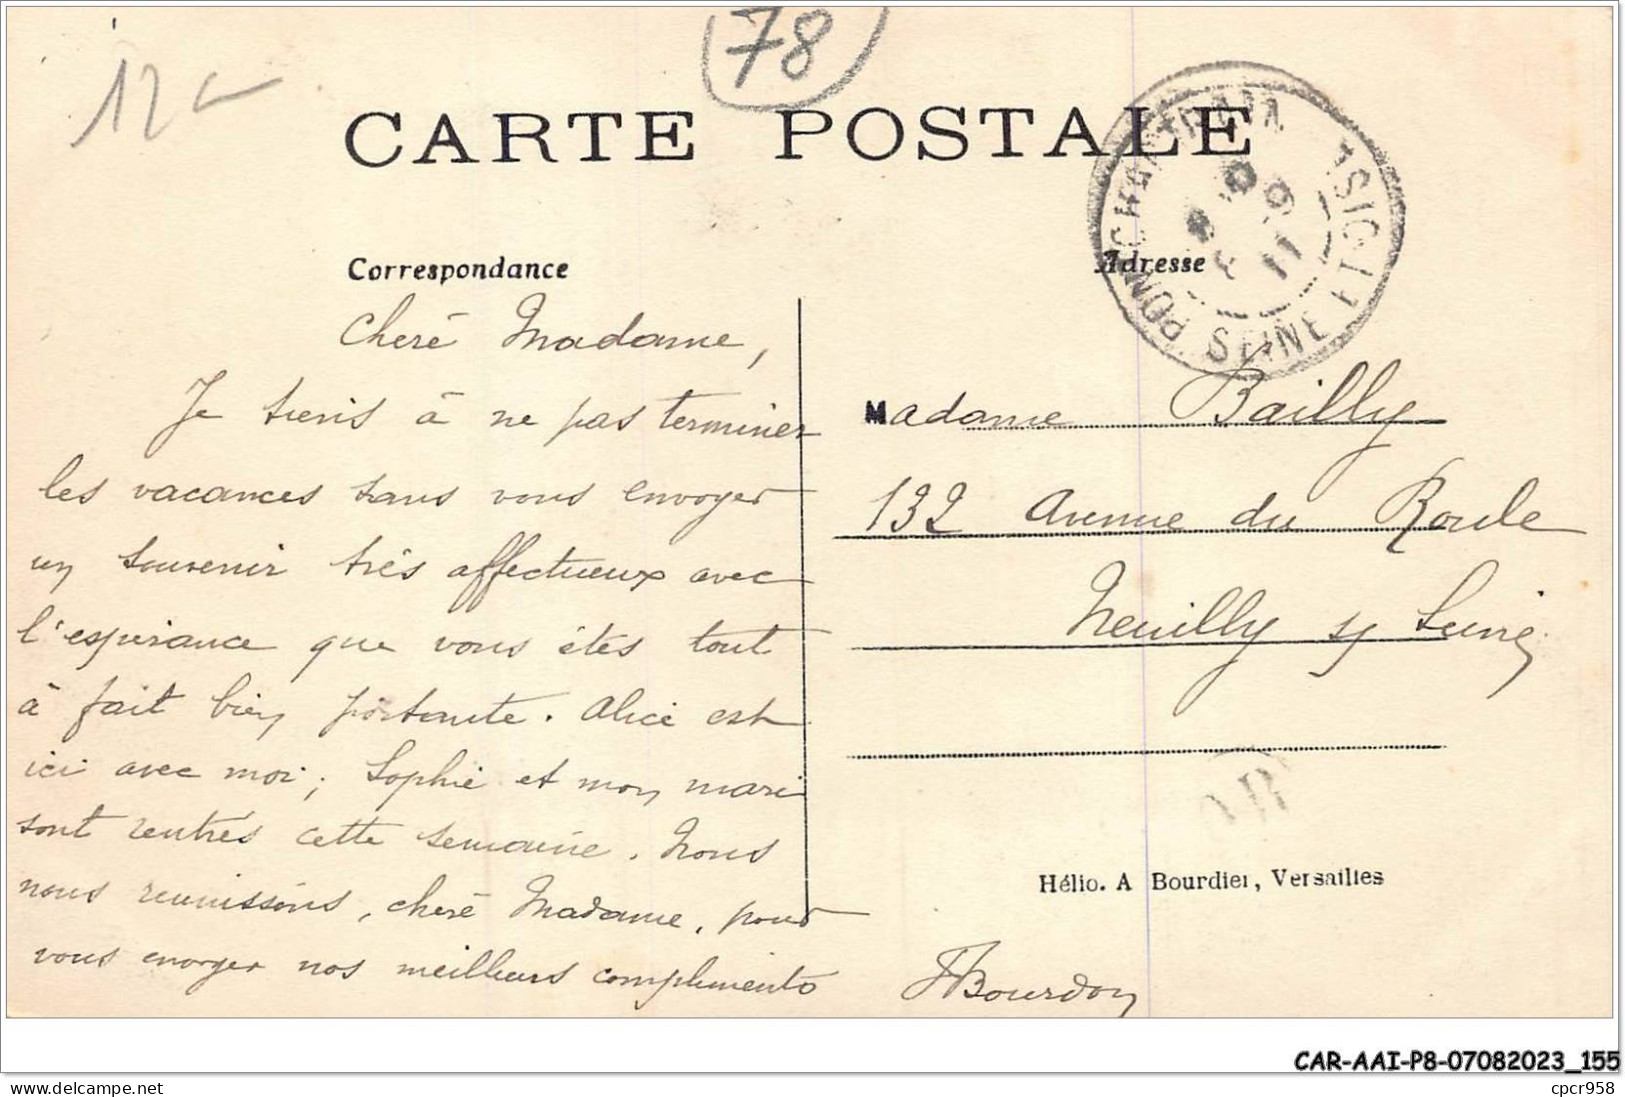 12
78
CARTE POSTALE
PONTCHARTRAIN
SEINE ET
Correspondance
Adresse
Chère Madame,
Je tiens à ne pas terminer
les vacances sans vous envoyer
un souvenir très affectueux avec
l'espérance que vous êtes tout
à fait bien portante. Alice est
ici avec moi; Sophie et mon mari
sont rentrés cette semaine. Nous
nous réunissons, chère Madame, pour
vous envoyer nos meilleurs compliments
JBourdon
Madame Bailly
132 Avenue du Roule
Neuilly s/ Seine
OR
Hélio. A Bourdier, Versailles
CAR-AAI-P8-07082023_155
www.delcampe.net
cpcr958